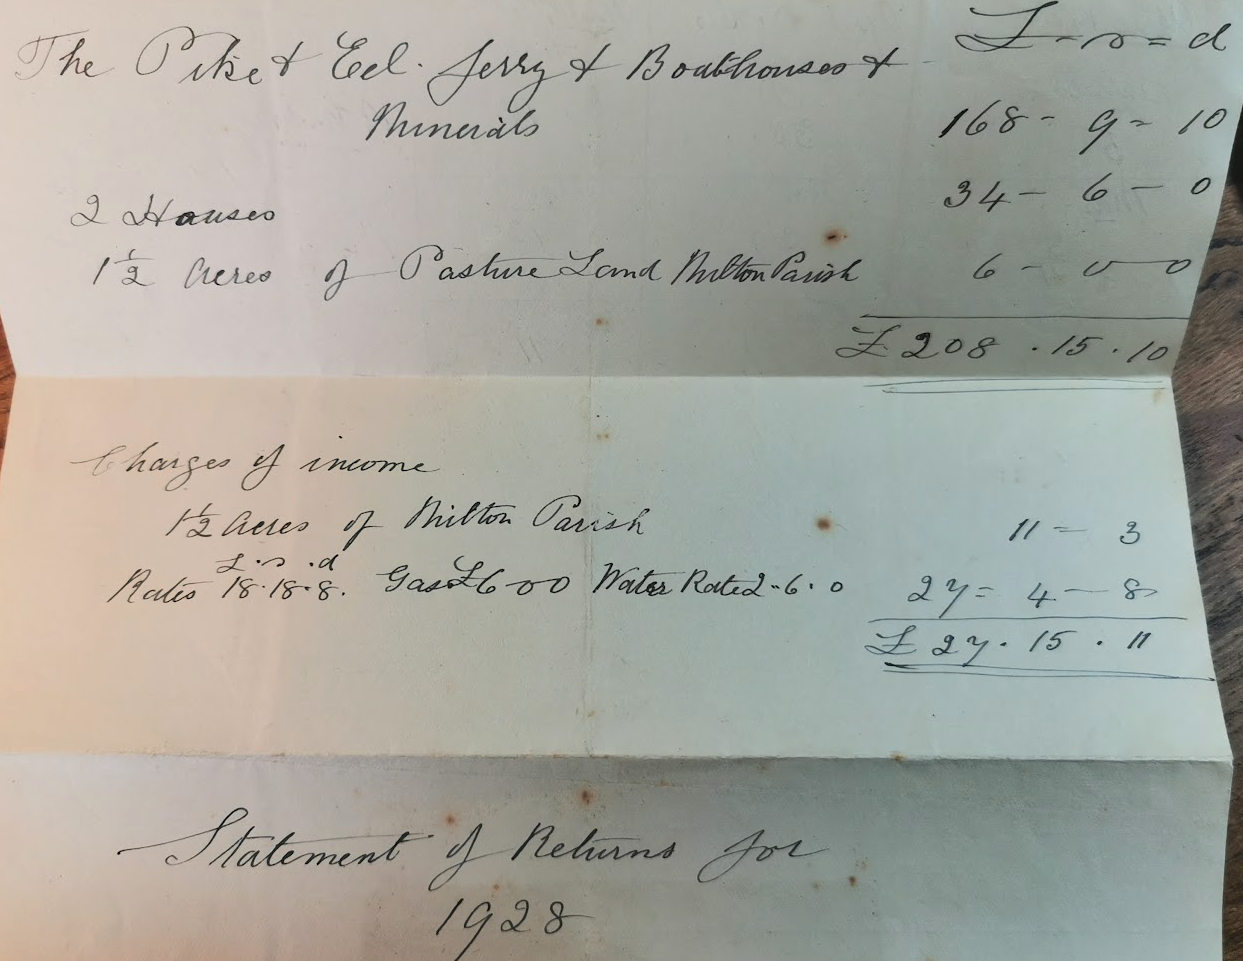 £ - s = d
The Pike & Eel. Ferry & Boathouses &
Minerals 168 - 9 - 10
2 Houses 34 - 6 - 0
1½ Acres of Pasture Land Milton Parish 6 - 0 - 0
£ 208 . 15 . 10
Charges of income
1½ Acres of Milton Parish 11 = 3
£ . s . d
Rates 18.18.8. Gas £6-0-0 Water Rate 2-6.0 27 = 4 - 8
£ 27 . 15 . 11
Statement of Returns for
1928